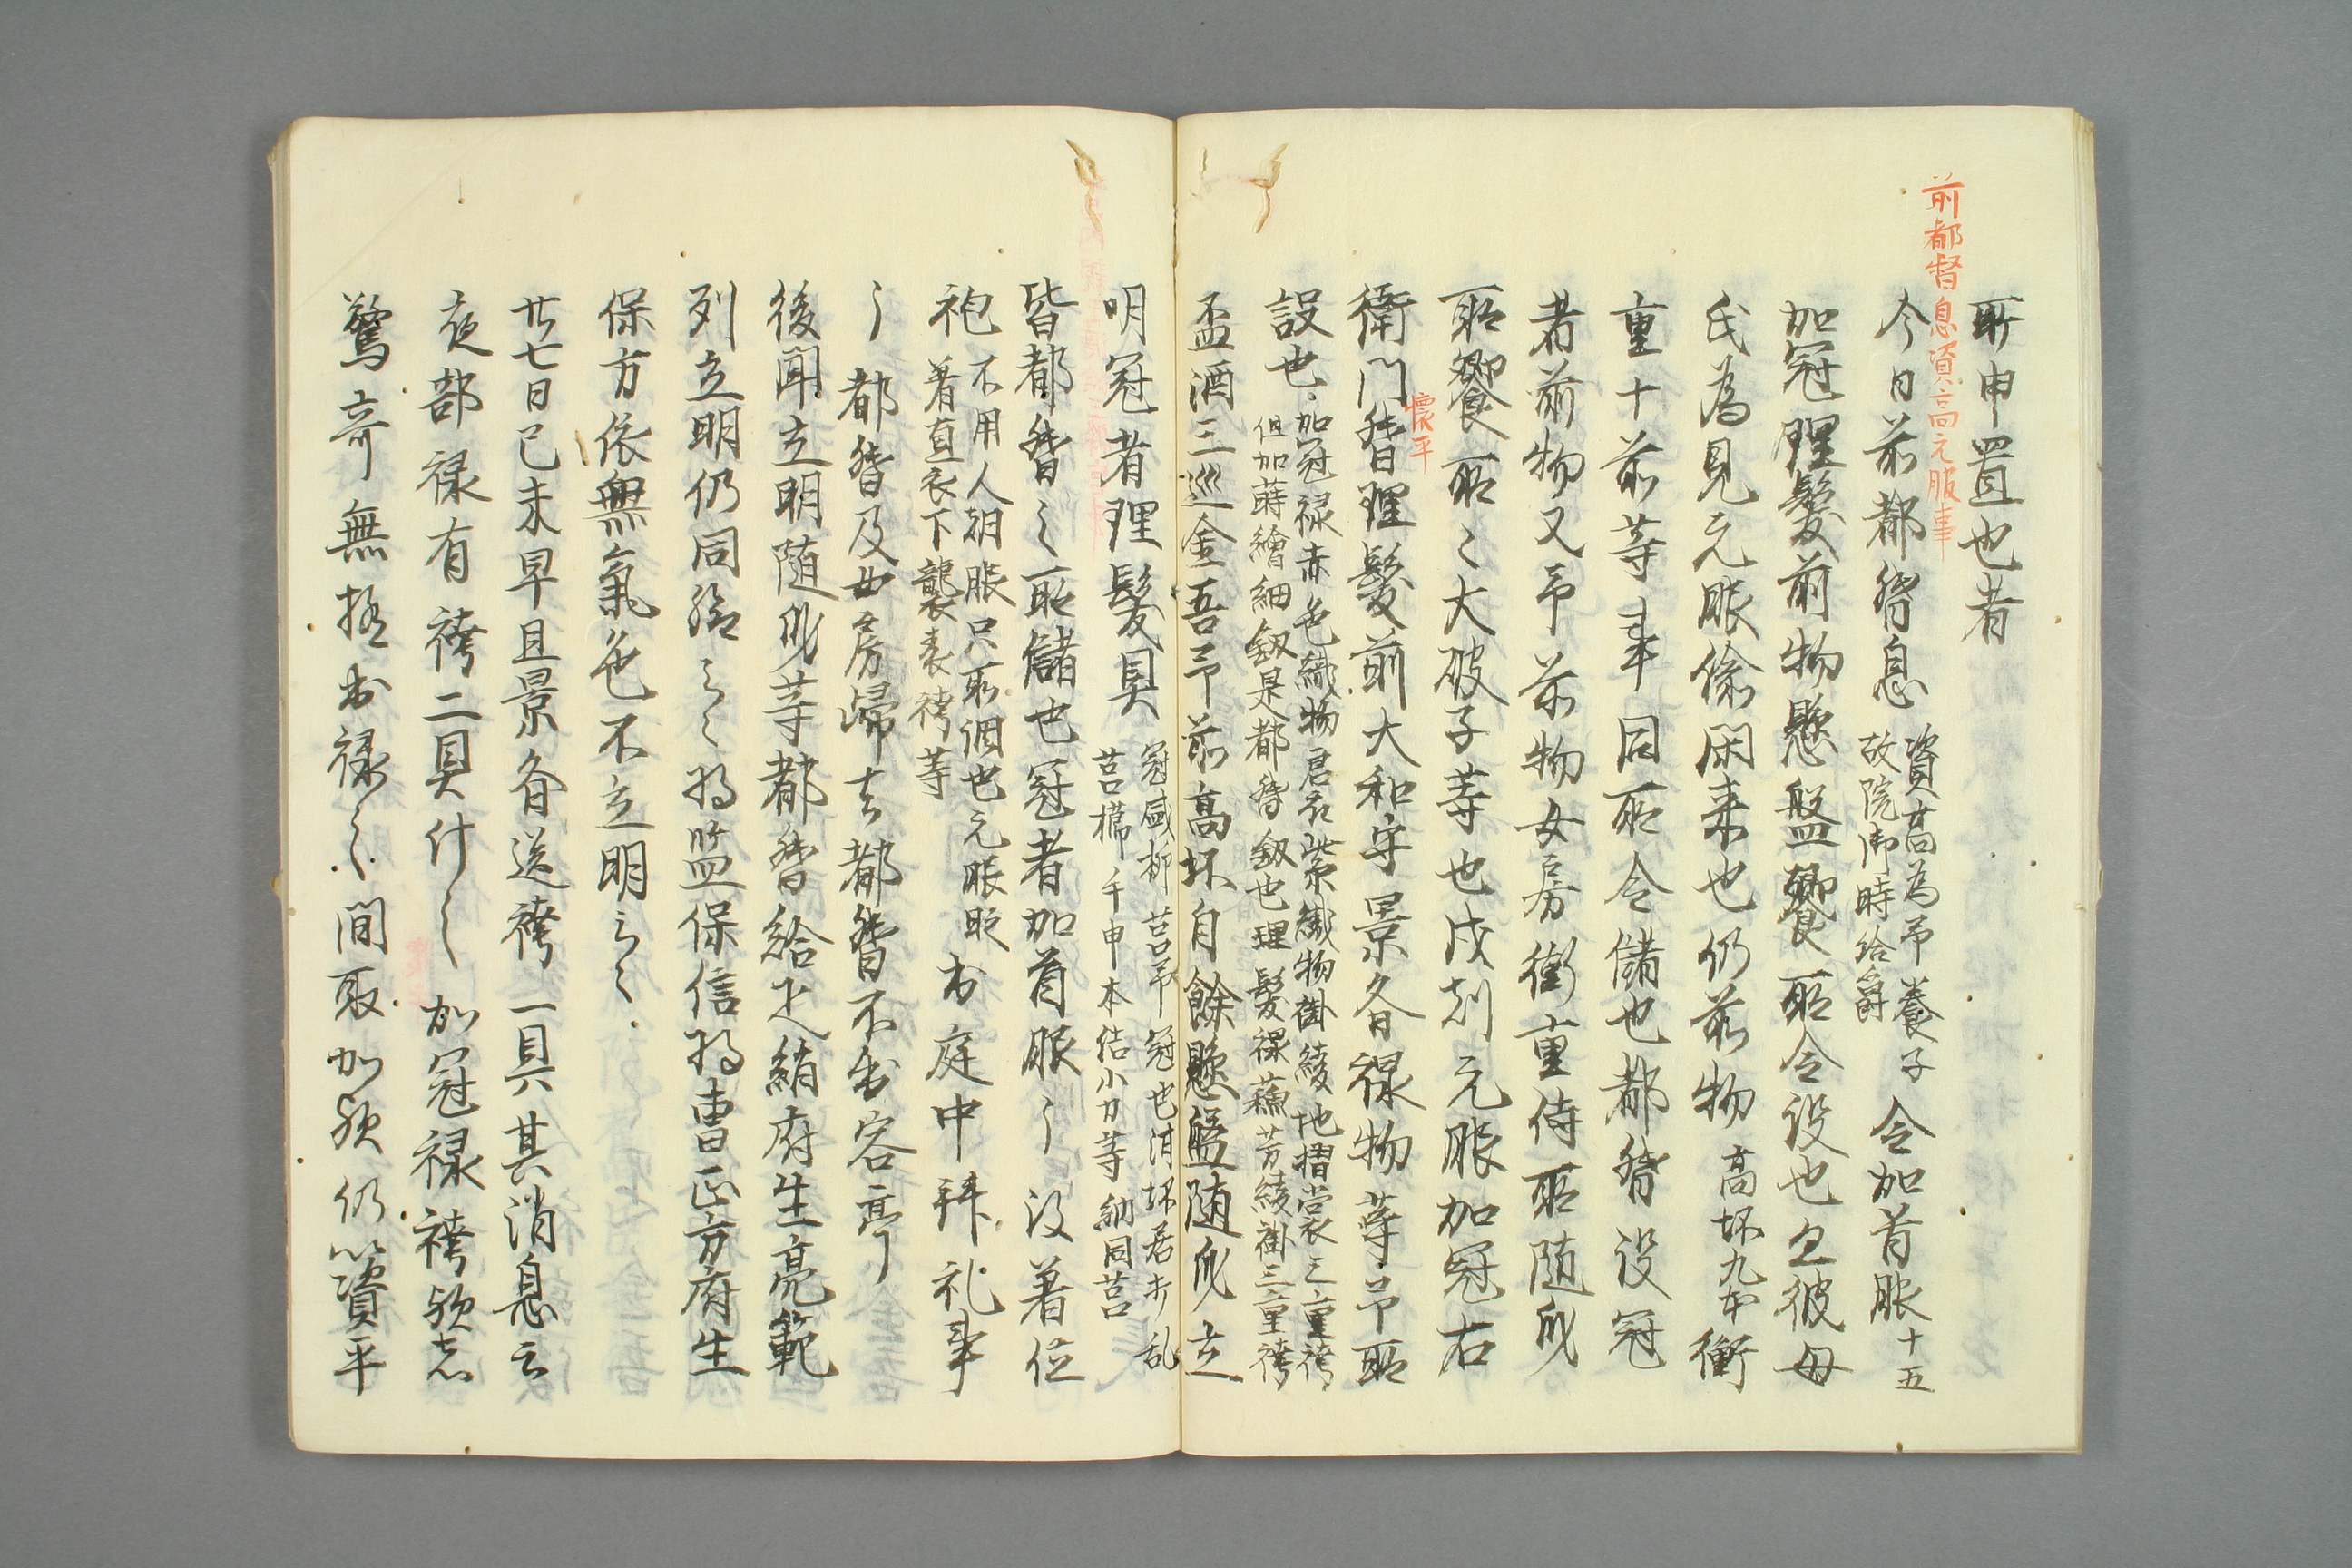 前都督息資高元服事
所申置也者
今日前都督息資高為予養子故院御時給爵令加首服十五
加冠理髪前物懸盤饗所令設也又彼母
氏為見元服候閑来也仍前物高坏九本衝
重十前等事同所令儲也都督設冠
者前物又予前物女房衝重侍所随身
所饗所々大破子等也戌剋元服加冠右
懐平
衛門督理髪前大和守景斉禄物等予所
設也加冠禄赤色織物唐衣紫織物褂綾地摺裳衣三重袴
但加蒔繪細釼是都督釼也理髪禄蘓芳綾褂三重袴
盃酒三巡金吾予前高坏自餘懸盤随身立
明冠者理髪具冠盛柳筥予冠也泔坏居赤乱
筥櫛千申本結小刀等納同筥
皆都督之所儲也冠者加首服之後着位
袍不用人朝服只所調也元服昵
着直衣下襲表袴等
於庭中拝礼事
了都督及女房帰去都督不出客亭
後聞立明随身等都督給疋絹府生亮範
列立明仍同給之々将監保信将曹正方府生
保方依無氣色不立明云々
廿七日己未早旦景斉送袴一具其消息云
夜部禄有袴二具付之加冠禄袴欤志
驚奇無極出禄之間取加欤仍以資平